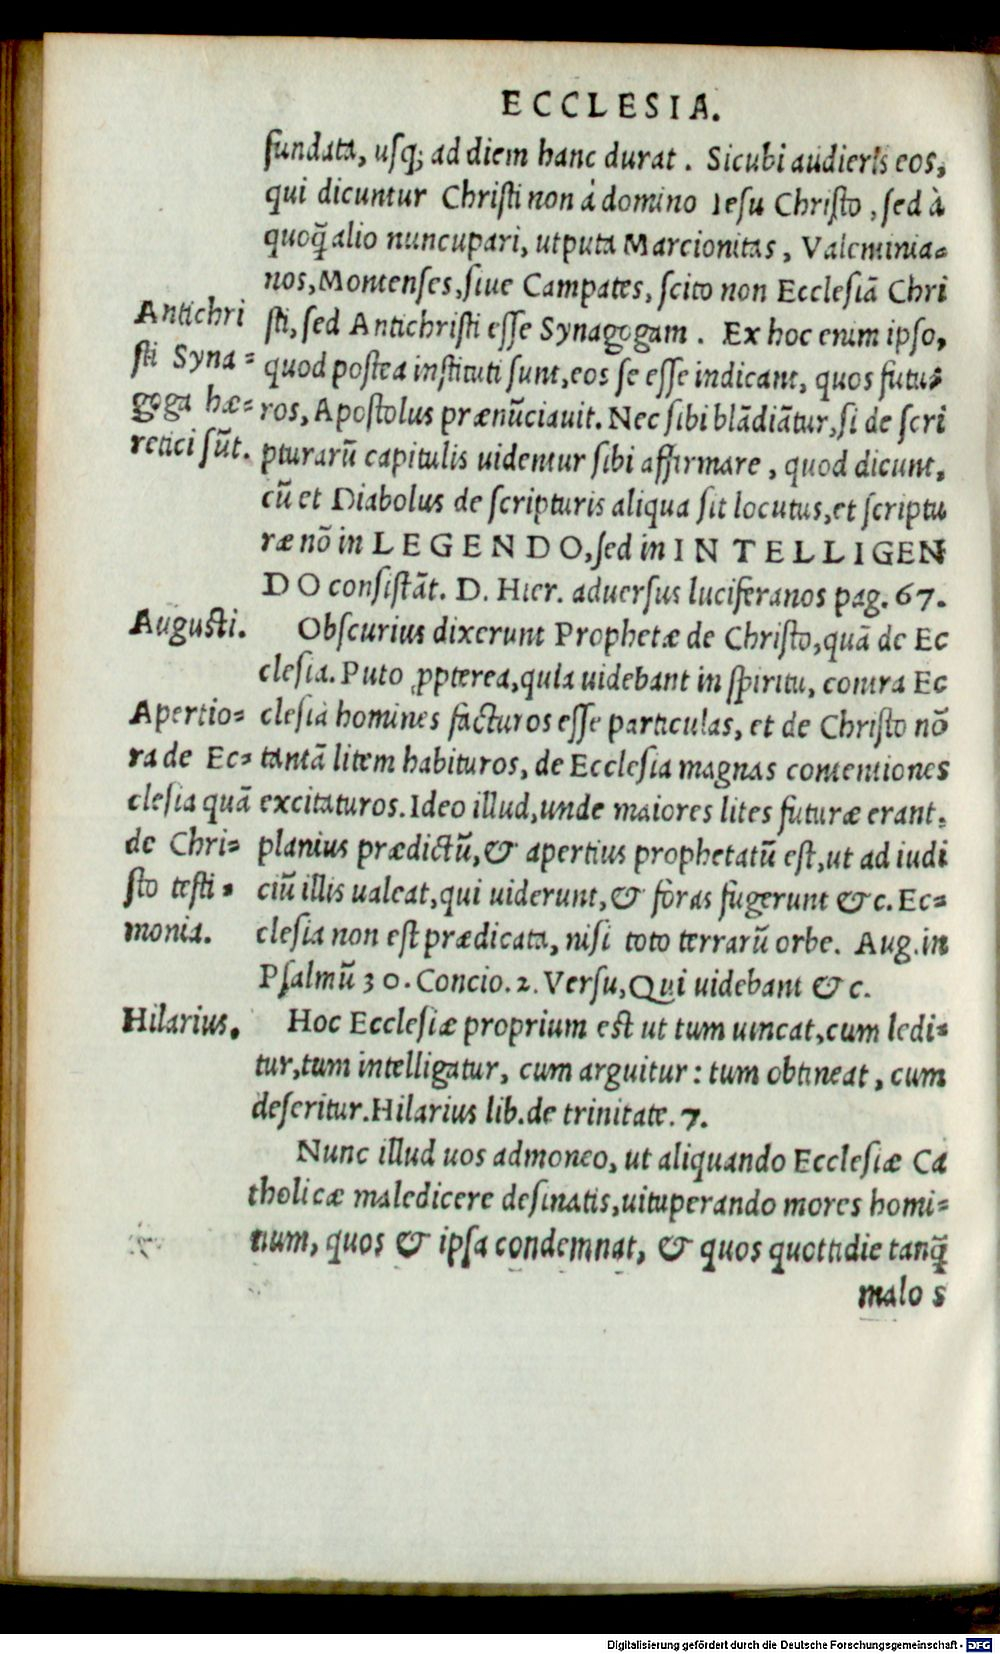 ECCLESIA.
fundata, usq; ad diem hanc durat. Sicubi audieris eos,
qui dicuntur Christi non á domino Iesu Christo, sed à
quoq̃ alio nuncupari, utputa Marcionitas, Valentinia=
nos, Montenses, siue Campates, scito non Ecclesiã Chri
sti, sed Antichristi esse Synagogam. Ex hoc enim ipso,
quod postea instituti sunt, eos se esse indicant, quos futu=
ros, Apostolus prænũciauit. Nec sibi blãdiãtur, si de scri
pturarũ capitulis uidentur sibi affirmare, quod dicunt,
cũ et Diabolus de scripturis aliqua sit locutus, et scriptu
ræ nõ in LEGENDO, sed in INTELLIGEN
DO consistãt. D. Hier. aduersus luciferanos pag. 67.
Antichri
sti Syna=
goga hæ=
retici sũt.
Obscurius dixerunt Prophetæ de Christo, quã de Ec
clesia. Puto ꝓpterea, quia uidebant in spiritu, contra Ec
clesiã homines facturos esse particulas, et de Christo nõ
tantã litem habituros, de Ecclesia magnas contentiones
excitaturos. Ideo illud, unde maiores lites futuræ erant,
planius prædictũ, & apertius prophetatũ est, ut ad iudi
ciũ illis ualeat, qui uiderunt, & foras fugerunt &c. Ec=
clesia non est prædicata, nisi toto terrarũ orbe. Aug. in
Psalmũ 30. Concio. 2. Versu, Qui uidebant &c.
Augusti.
Apertio=
ra de Ec=
clesia quã
de Chri=
sto testi=
monia.
Hoc Ecclesiæ proprium est ut tum uincat, cum ledi=
tur, tum intelligatur, cum arguitur: tum obtineat, cum
deseritur. Hilarius lib. de trinitate. 7.
Hilarius.
Nunc illud uos admoneo, ut aliquando Ecclesiæ Ca
tholicæ maledicere desinatis, uituperando mores homi=
num, quos & ipsa condemnat, & quos quottidie tanq̃
malos
Digitalisierung gefördert durch die Deutsche Forschungsgemeinschaft - DFG